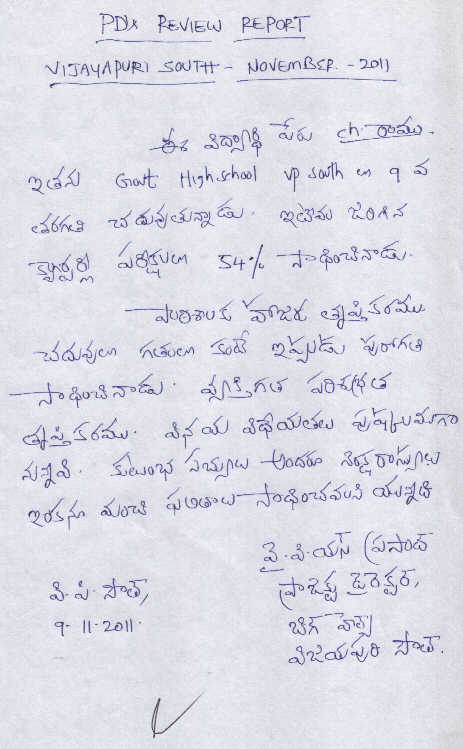 PDs REVIEW REPORT
VIJAYAPURI SOUTH - NOVEMBER - 2011
ఈ విద్యార్థి పేరు ch. రాము.
ఇతను Govt High school vp south లో 9 వ
తరగతి చదువుతున్నాడు. ఇటీవల జరిగిన
క్వార్టర్లీ పరీక్షలలో 54% సాధించినాడు.
పాఠశాలకు హాజరు తృప్తికరము.
చదువులో గతంలో కంటే ఇప్పుడు పురోగతి
సాధించినాడు. వ్యక్తిగత పరిశుభ్రత
తృప్తికరము. వినయ విధేయతలు పుష్కలముగా
ఉన్నవి. కుటుంబ సభ్యులు అందరూ నిరక్షరాస్యులు
ఇంకనూ మంచి ఫలితాలు సాధించవలసి యున్నది
వై.పి.యస్ ప్రసాద్
వి.పి. సౌత్, ప్రాజెక్టు డైరెక్టర్,
9.11.2011. బిగ్ హెల్ప్
విజయపురి సౌత్.